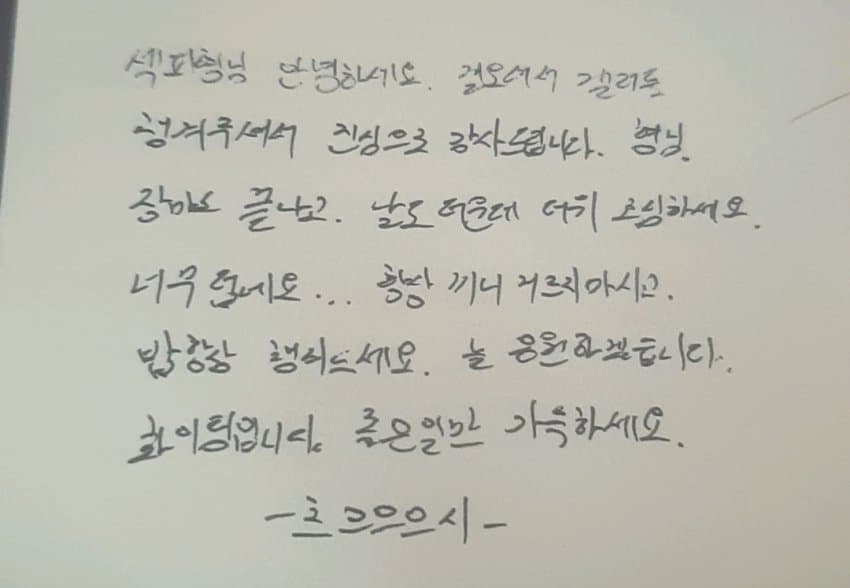 섹피형님 안녕하세요. 걸오셔서
청겨주셔서 진심으로 감사드립니다. 형님.
장마도 끝나고. 날도 더운데 더위 조심하세요.
너무 덥네요... 항상 끼니 거르지마시고.
밥 항상 챙겨드세요. 늘 응원하겠습니다.
화이팅입니다. 좋은일만 가득하세요.